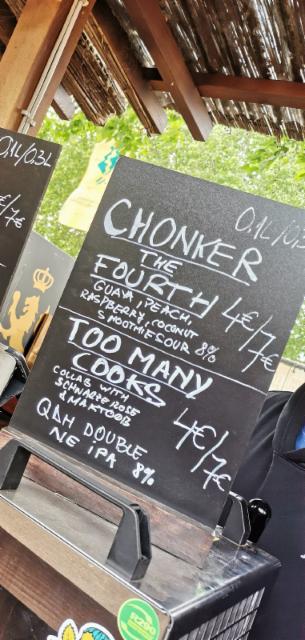 0.1L/0.3L
€/7€
0.1L/0.
CHONKER
THE
FOURTH 4€/7€
GUAVA, PEACH,
RASPBERRY, COCONUT
SMOOTHIE SOUR 8%
TOO MANY
COOKS 4€/7€
COLLAB WITH
SCHWARZE ROSE
& MAKTOOB
QDH DOUBLE
NE IPA 8%